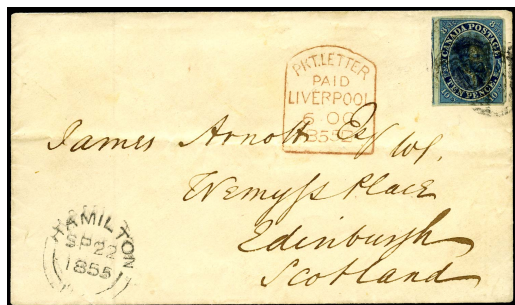 CANADA POSTAGE
TEN PENCE
PKT. LETTER
PAID
LIVERPOOL
6 OC
James Arnott Esq WS.
Wemyſs Place
Edinburgh
Scotland
HAMILTON
SP 22
1855